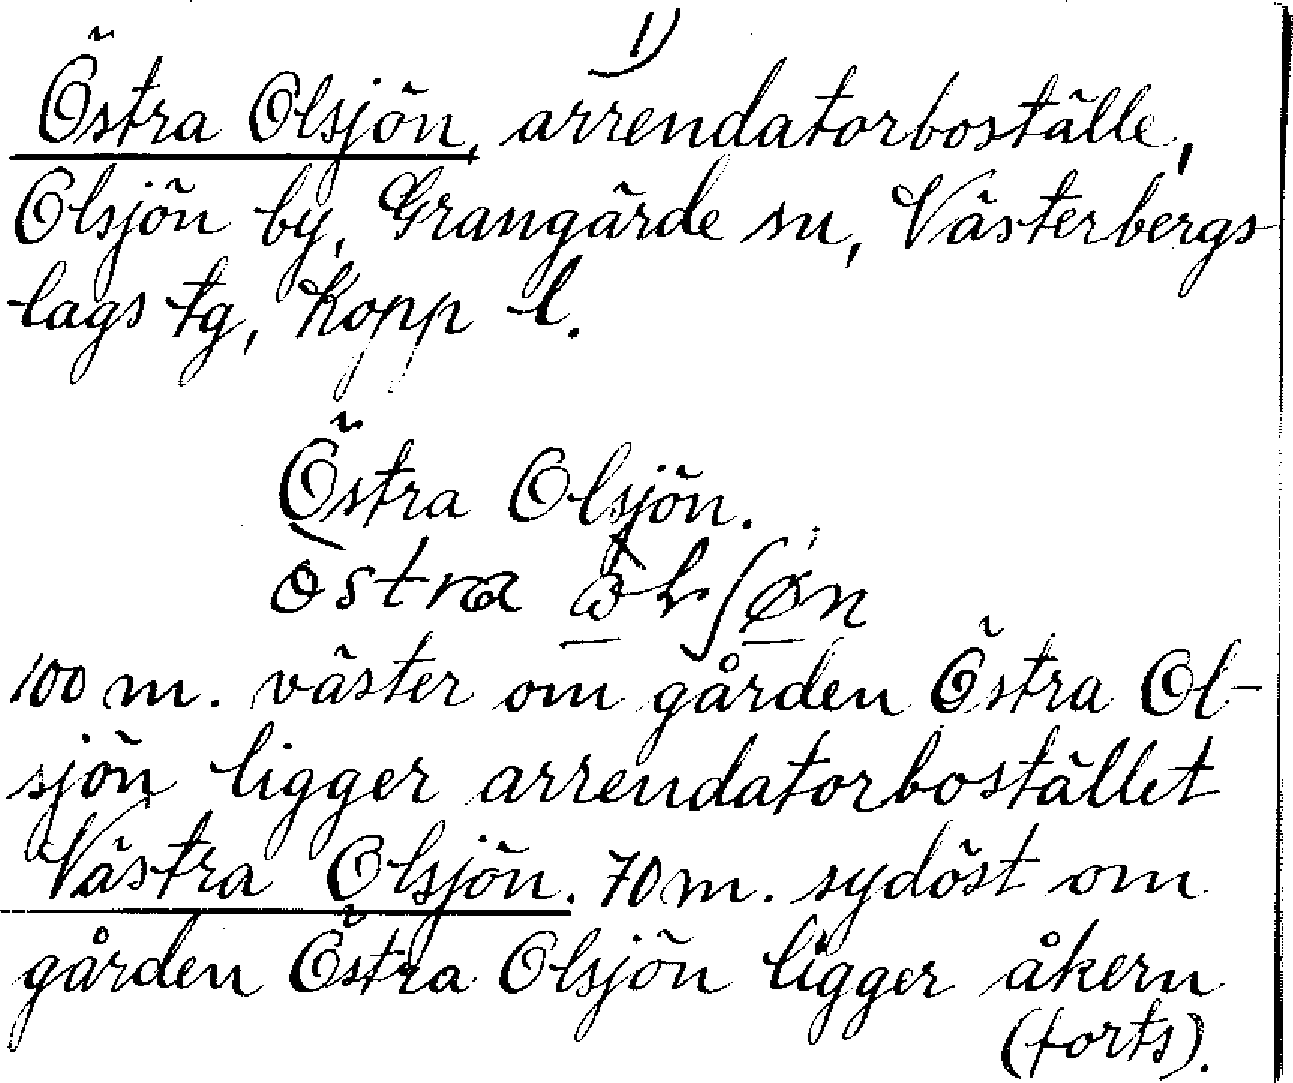 1)
Östra Olsjön, arrendatorboställe,
Olsjön by, Grangärde sn, Västerbergs
lags tg, Kopp l.
Östra Olsjön.
100 m. väster om gården Östra Ol-
sjön ligger arrendatorbostället
Västra Olsjön. 70 m. sydöst om
gården Östra Olsjön ligger åkern
(forts).